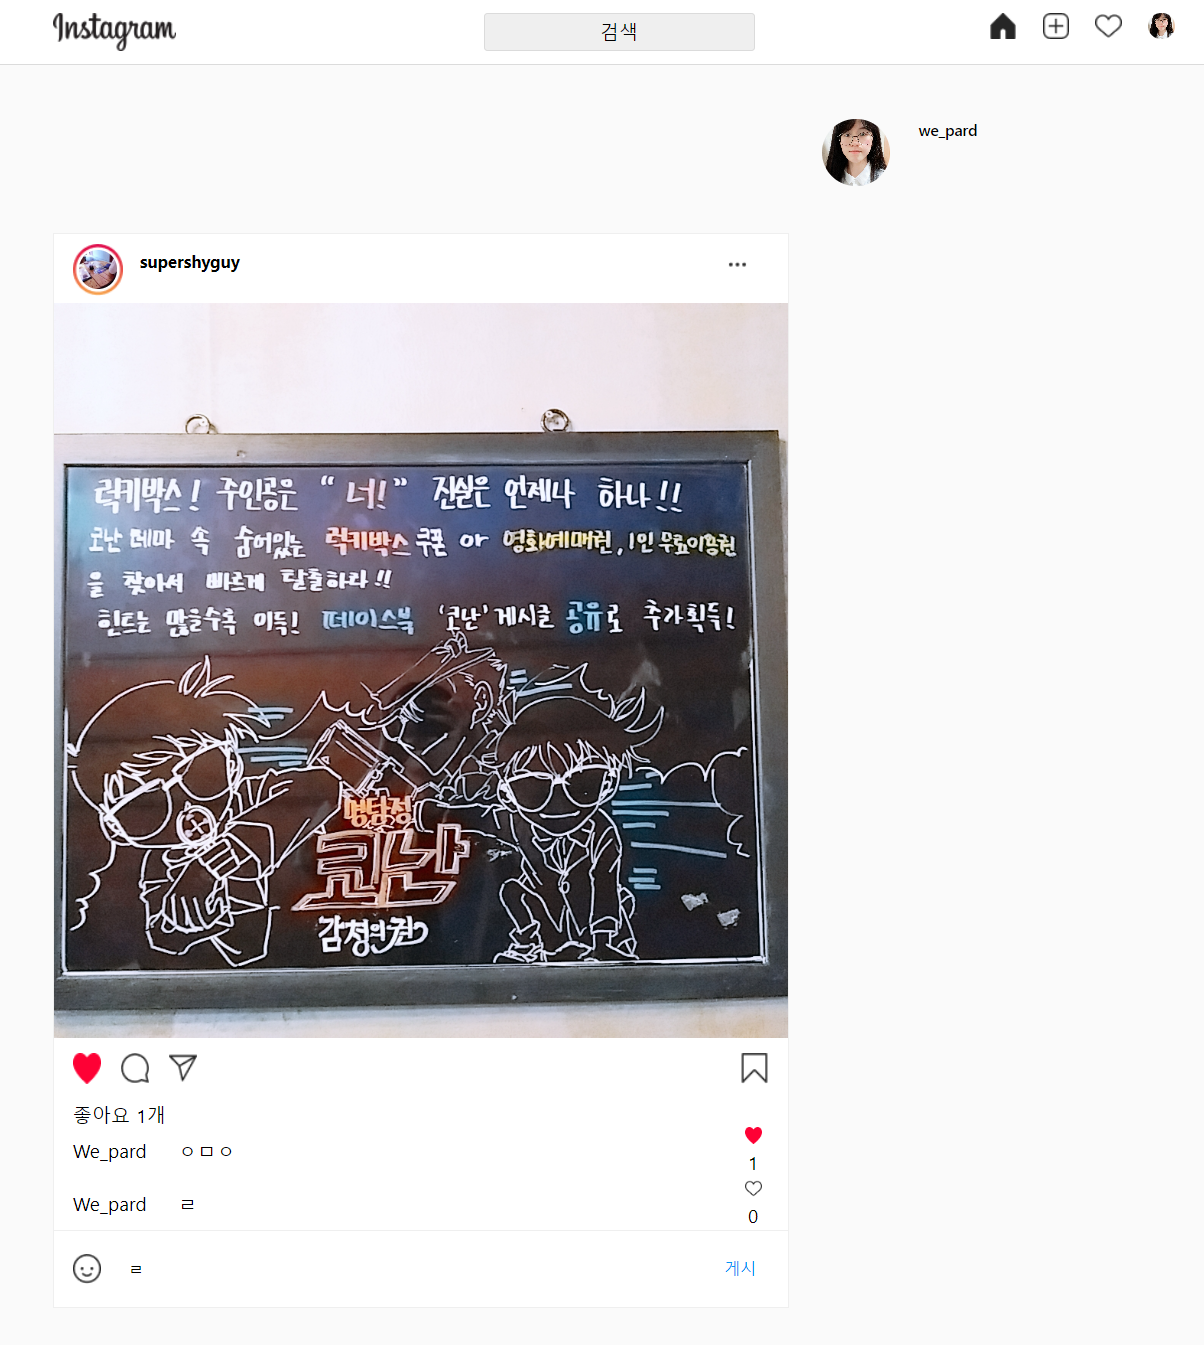 Instagram
검색
we_pard
supershyguy
럭키박스! 주인공은 "너!" 진실은 언제나 하나!!
코난 테마 속 숨어있는 럭키박스 쿠폰 or 영화예매권, 1인 무료이용권
을 찾아서 빠르게 탈출하라!!
힌트는 많을수록 이득! 페이스북 '코난' 게시글 공유로 추가획득!
명탐정
코난
감청의권
좋아요 1개
We_pard ㅇㅁㅇ
1
We_pard ㄹ
0
ㄹ 게시